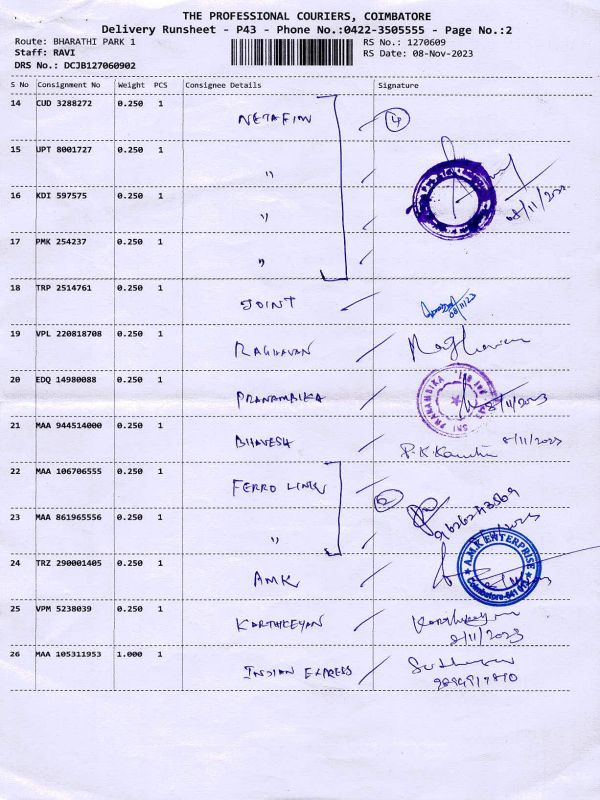 THE PROFESSIONAL COURIERS, COIMBATORE
Delivery Runsheet - P43 - Phone No.:0422-3505555 - Page No.:2
Route: BHARATHI PARK 1
RS No.: 1270609
Staff: RAVI
RS Date: 08-Nov-2023
DRS No.: DCJB127060902
S No Consignment No Weight PCS Consignee Details Signature
14 CUD 3288272 0.250 1 NETAFIM 4
15 UPT 8001727 0.250 1 "
08/11/2023
16 KDI 597575 0.250 1 "
17 PMK 254237 0.250 1 "
18 TRP 2514761 0.250 1 JOINT
08/11/23
19 VPL 220818708 0.250 1 RAGHAVAN Raghavan
20 EDQ 14980088 0.250 1 PRANAMBIKA 8/11/2023
SRI PRANAMBIKA
21 MAA 944514000 0.250 1 BHAVESH P.K. 8/11/2023
22 MAA 106706555 0.250 1 FERRO LINK 2
23 MAA 861965556 0.250 1 "
24 TRZ 290001405 0.250 1 AMK
A.M.K ENTERPRISE
Coimbatore-641 012
25 VPM 5238039 0.250 1 KARTHIKEYAN Karthikeyan
8/11/2023
26 MAA 105311953 1.000 1 INDIAN EXPRESS